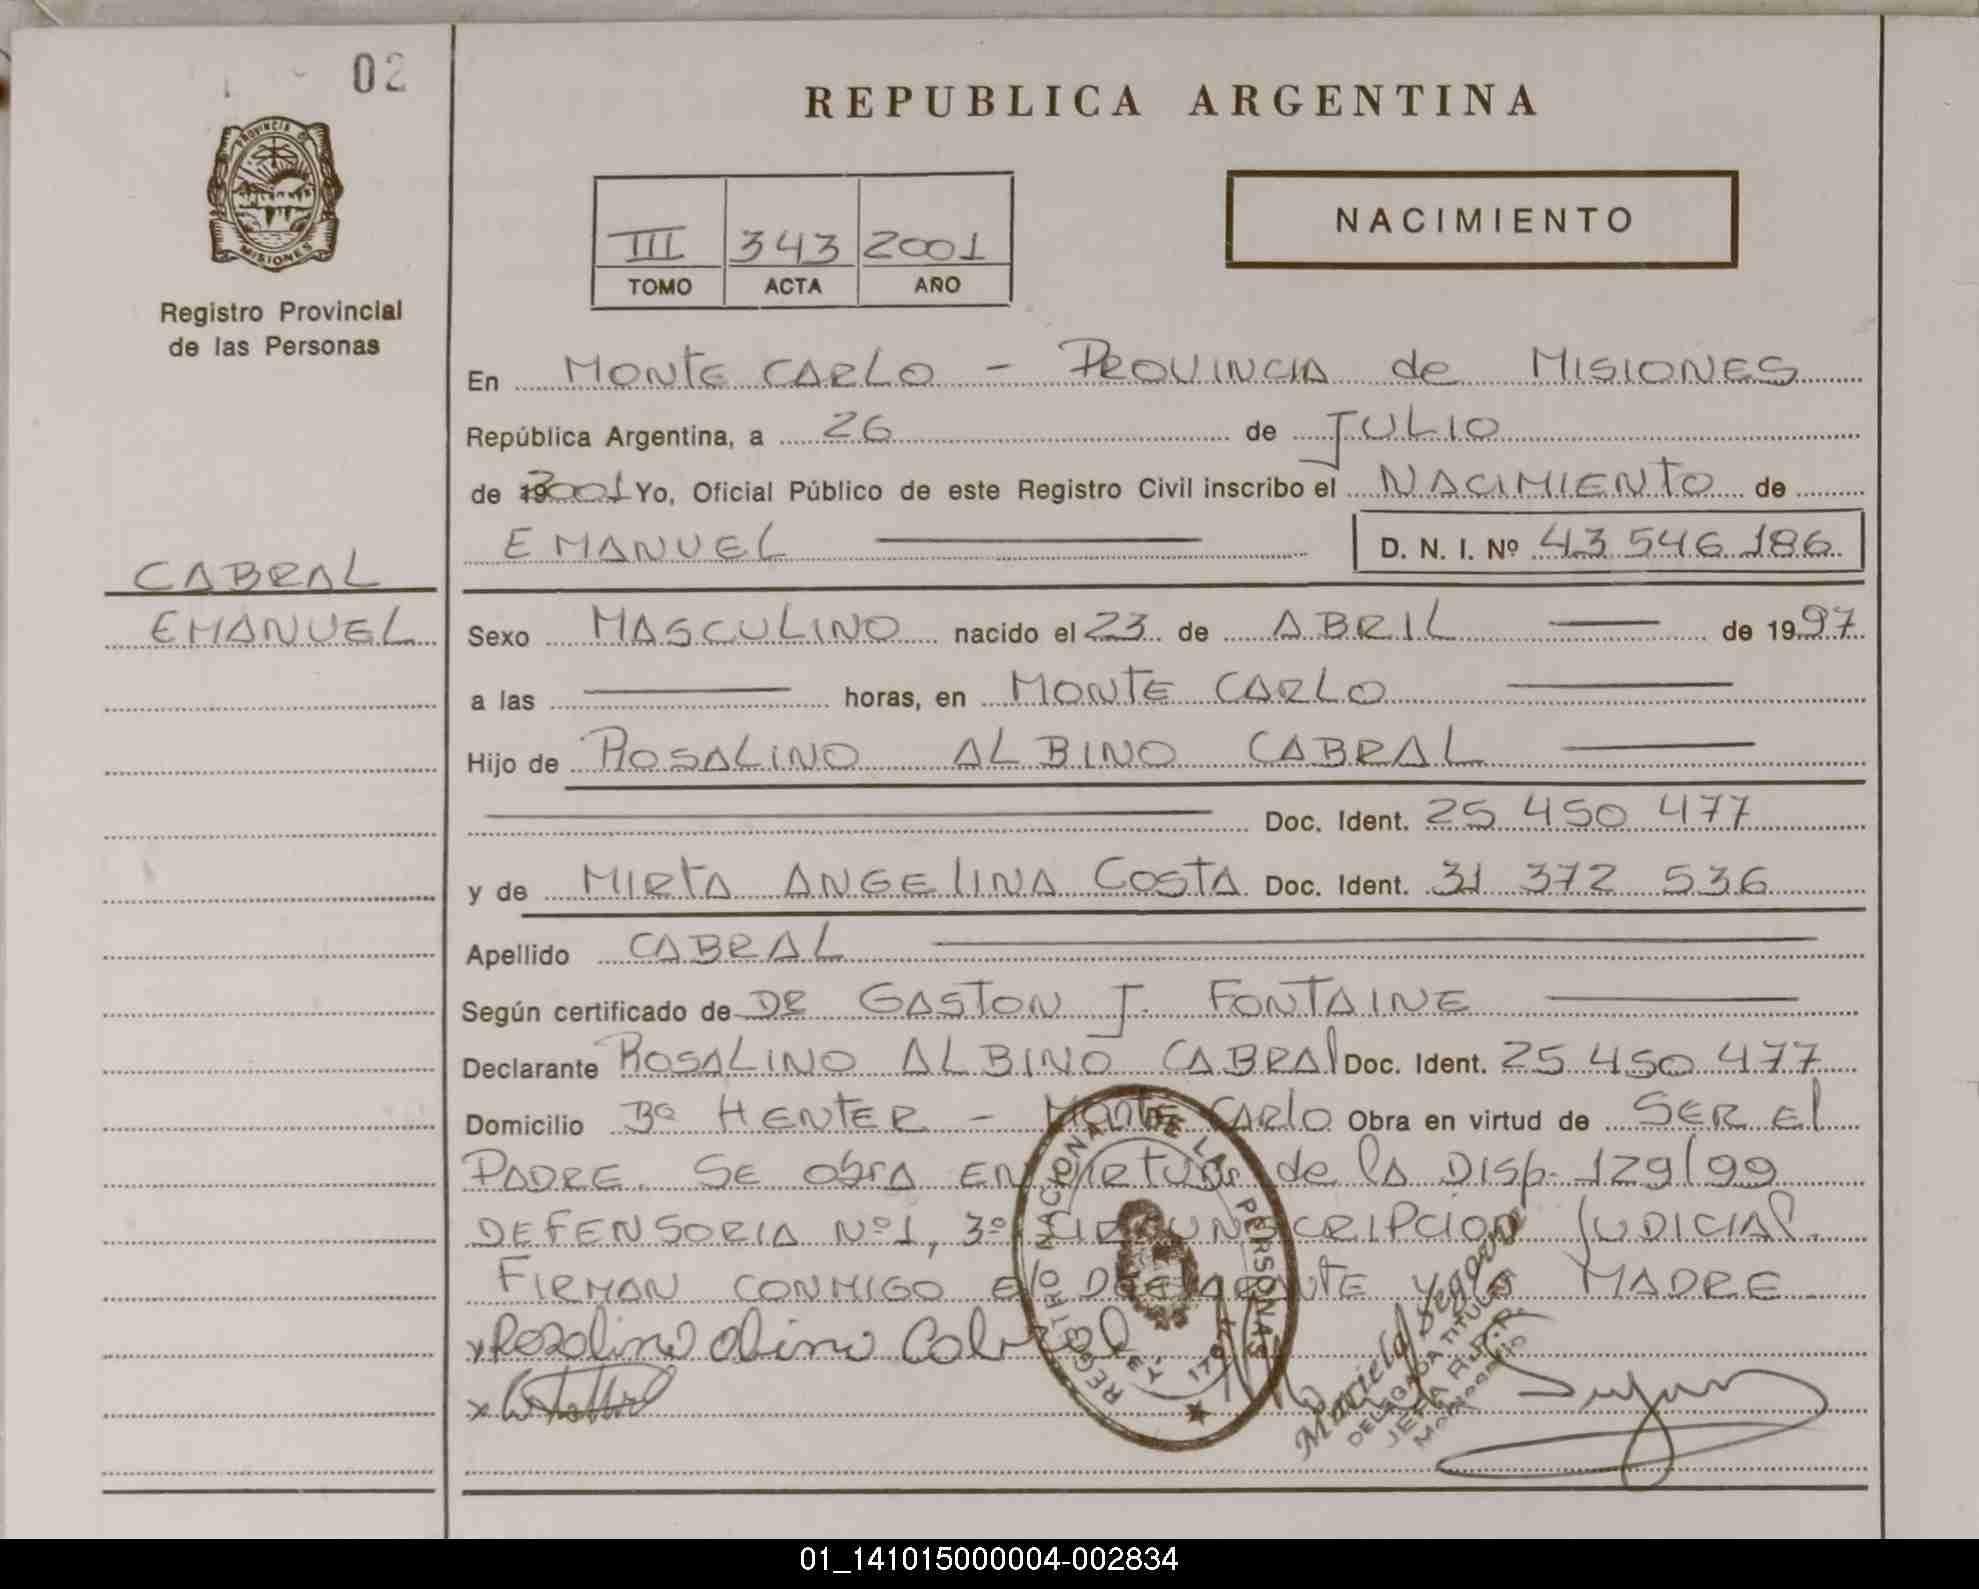 02
REPUBLICA ARGENTINA
PROVINCIA DE
MISIONES
Registro Provincial
de las Personas
III 343 2001
TOMO ACTA AÑO
NACIMIENTO
En MONTE CARLO - PROVINCIA de MISIONES
República Argentina, a 26 de JULIO
de 2001 Yo, Oficial Público de este Registro Civil inscribo el NACIMIENTO de
EMANUEL D. N. I. Nº 43 546 186
CABRAL
EMANUEL
Sexo MASCULINO nacido el 23 de ABRIL de 1997
a las horas, en MONTE CARLO
Hijo de ROSALINO ALBINO CABRAL
Doc. Ident. 25 450 477
y de MIRTA ANGELINA COSTA Doc. Ident. 31 372 536
Apellido CABRAL
Según certificado de DR GASTON J. FONTAINE
Declarante ROSALINO ALBINO CABRAL Doc. Ident. 25 450 477
Domicilio Bº HENTER - Monte CARLO Obra en virtud de SER El
PADRE. SE obrA EN VIRTUD de lA DISP. 129/99
DEFENSORIA Nº1, 3º CIRCUNSCRIPCION JUDICIAL.
FIRMAN CONMIGO El DECLARANTE Y lA MADRE
x Rosalino Albino Cabral
REGISTRO NACIONAL DE LAS PERSONAS
DELEGADA TITULAR
JEFA R.P.P.
01_141015000004-002834